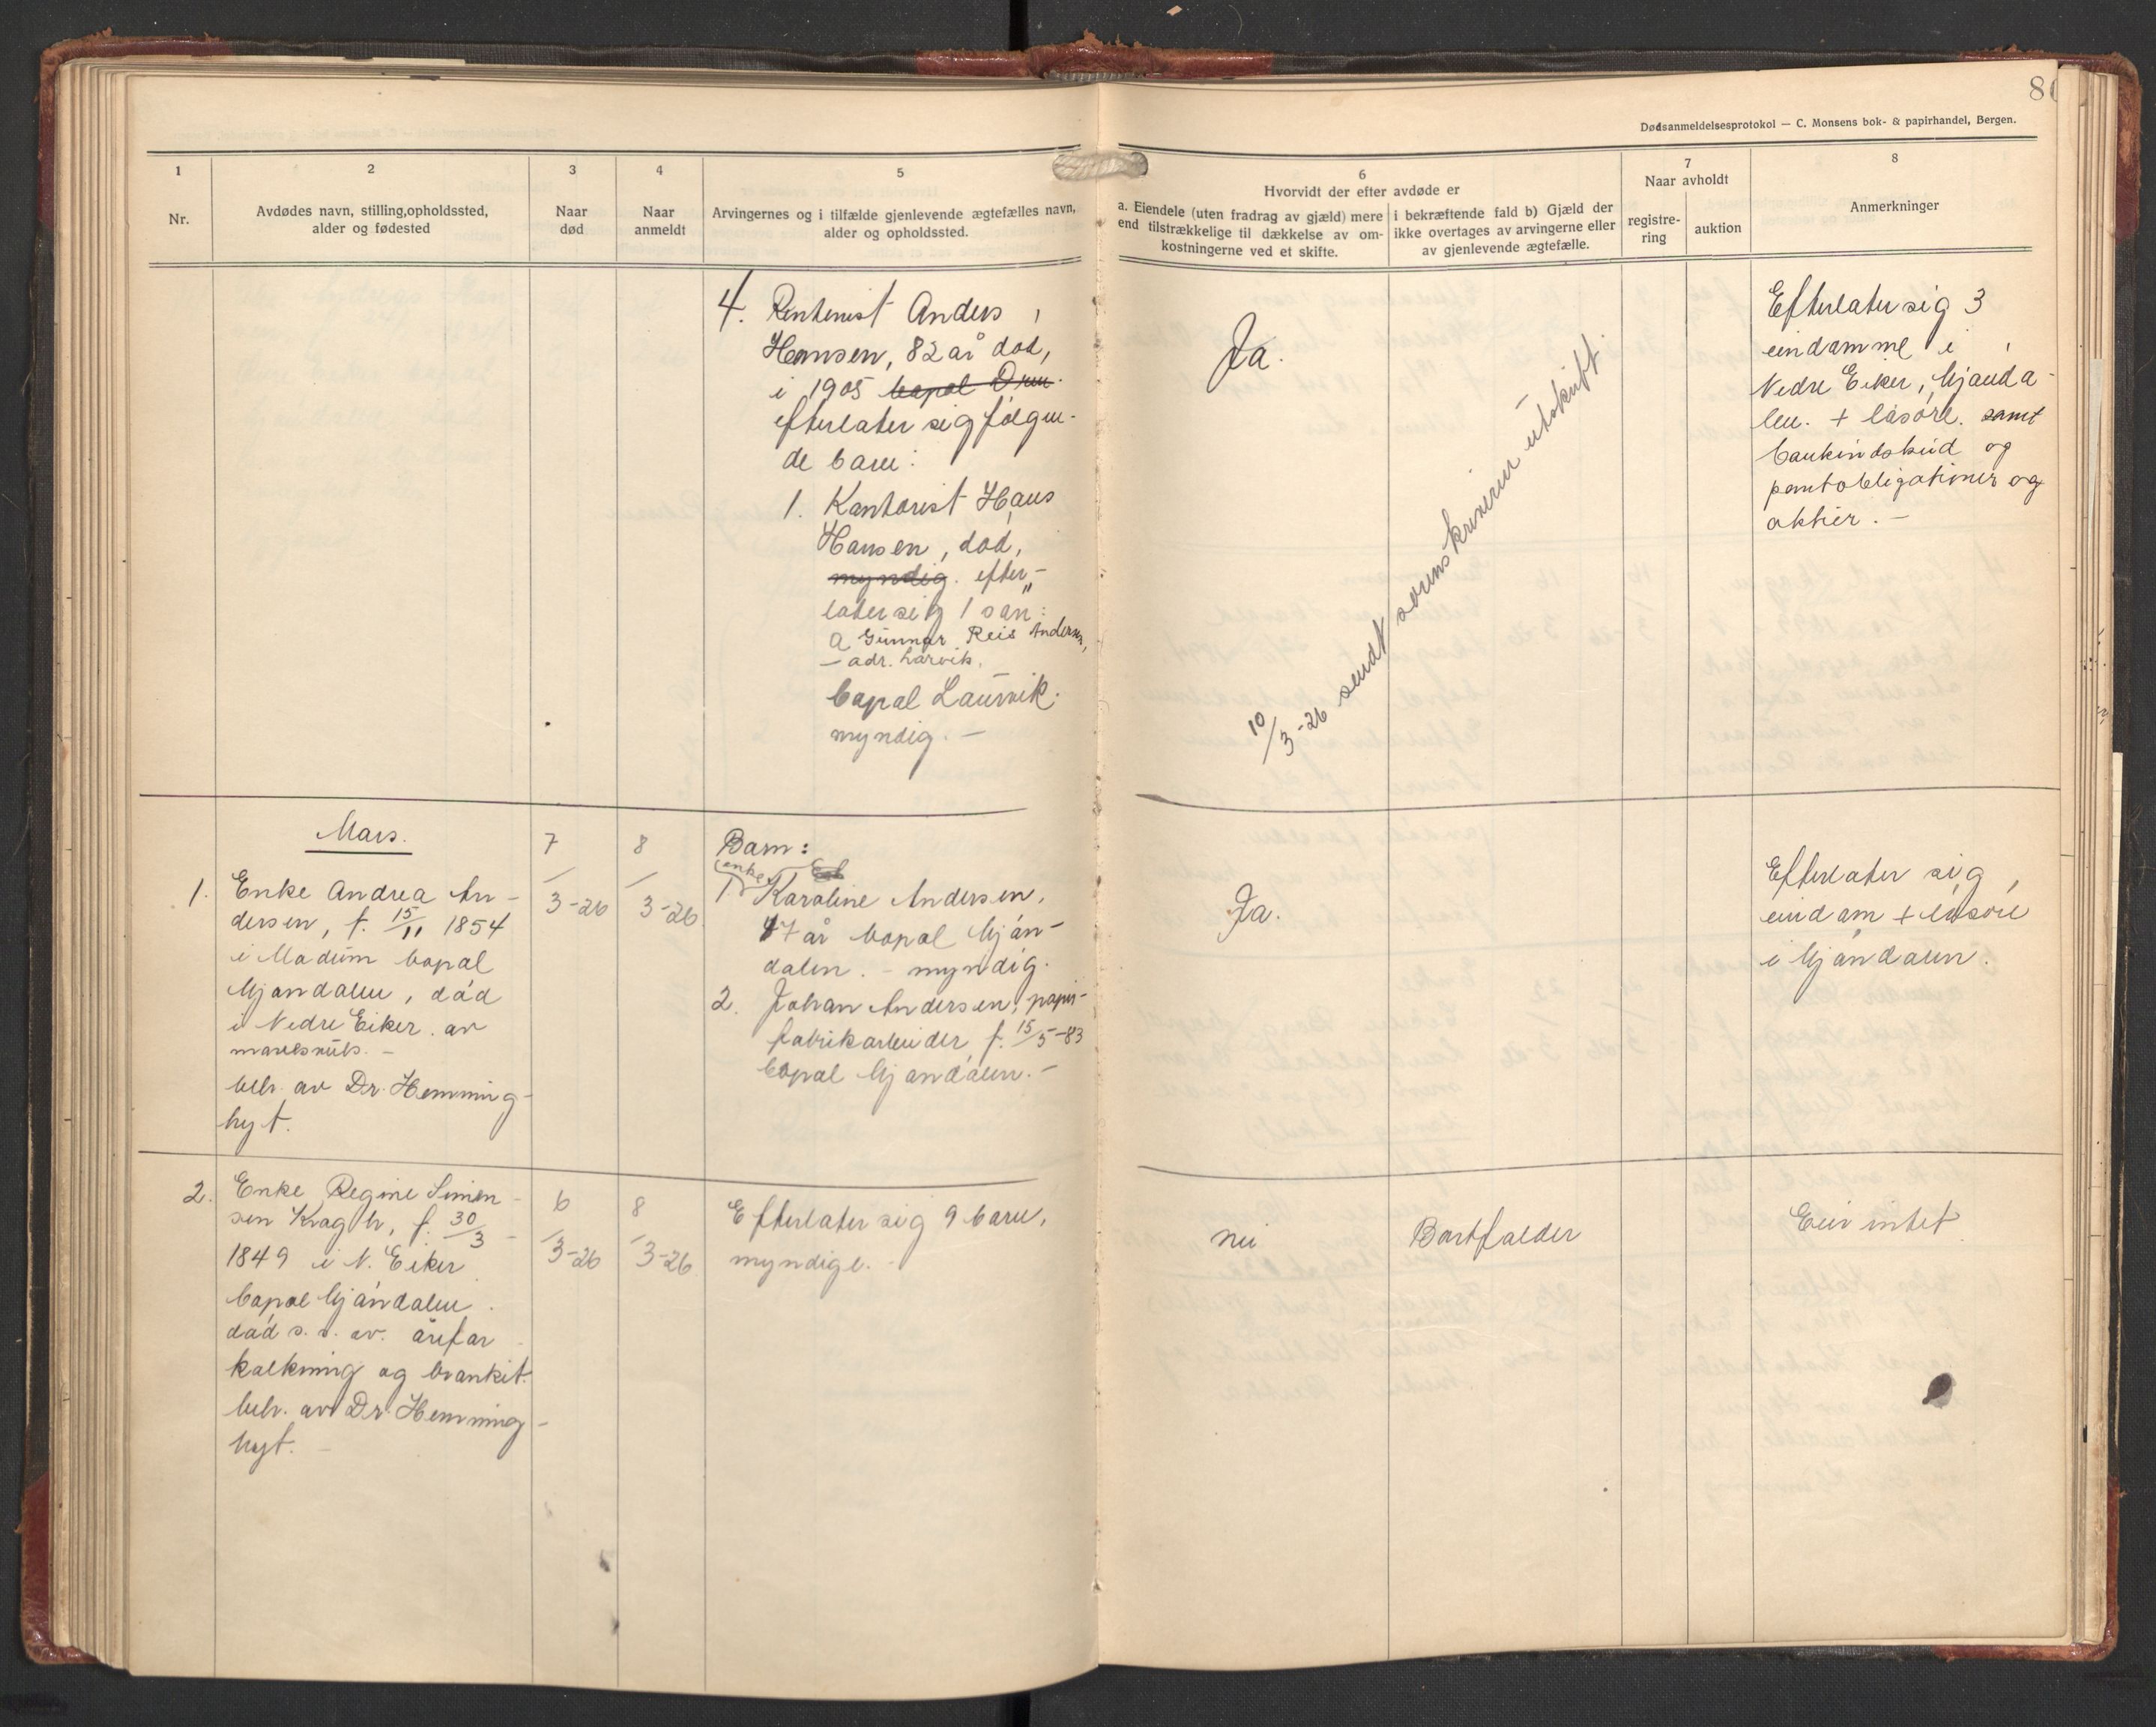 80
Dødsanmeldelsesprotokol — C. Monsens bok- & papirhandel, Bergen.
1
Nr.
2
Avdødes navn, stilling, opholdssted,
alder og fødested
3
Naar
død
4
Naar
anmeldt
5
Arvingernes og i tilfælde gjenlevende ægtefælles navn,
alder og opholdssted.
6
Hvorvidt der efter avdøde er
a. Eiendele (uten fradrag av gjæld) mere
end tilstrækkelige til dækkelse av om-
kostningerne ved et skifte.
i bekræftende fald b) Gjæld der
ikke overtages av arvingerne eller
av gjenlevende ægtefælle.
7
Naar avholdt
registre-
ring
auktion
8
Anmerkninger
4. Rentenist Anders
Hansen, 82 år død,
i 1905 bopæl Dram.
efterlater sig følgen-
de barn:
1. Kontorist Hans
Hansen, død,
myndig. efter-
later sig 1 søn:
a Gunnar Reis Andersen,
– adr. Larvik.
bopæl Laurvik.
myndig. –
Ja.
10/3-26 sendt sorenskriveren utskrift.
Efterlater sig 3
eiendomme i
Nedre Eiker, Mjønda-
len. + løsøre. samt
bankindskud og
pantobligationer og
aktier. –
Mars.
1. Enke Andrea An-
dersen, f. 15/11 1854
i Modum bopæl
Mjøndalen, død
i Nedre Eiker. av
beh. av Dr. Hemming-
hyt.
7/3-26
8/3-26
Barn:
(enke)
1 Karoline Andersen,
47 år bopæl Mjøn-
dalen. – myndig.
2. Johan Andersen, papir-
fabrikarbeider, f. 15/5-83
bopæl Mjøndalen. –
Ja.
Efterlater sig
eiendom + løsøre
i Mjøndalen.
2. Enke Regine Simen-
sen Kragh, f. 30/3 -
1849 i N. Eiker
bopæl Mjøndalen.
død s. s. av. årefor
kalkning og bronkit.
beh. av Dr. Hemming-
hyt. –
6/3-26
8/3-26
Efterlater sig 9 barn,
myndige. –
nei
Bortfalder
Eier intet.